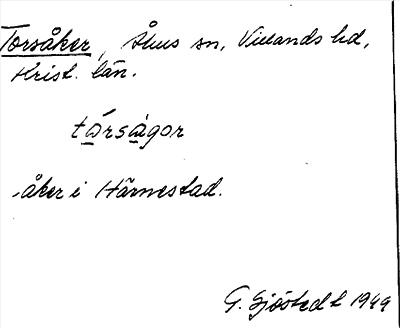 Torsåker, Åhus sn, Villands hd,
Krist. län.
tɷ́rsàgor
-åker i Härnestad.
G. Sjöstedt 1949